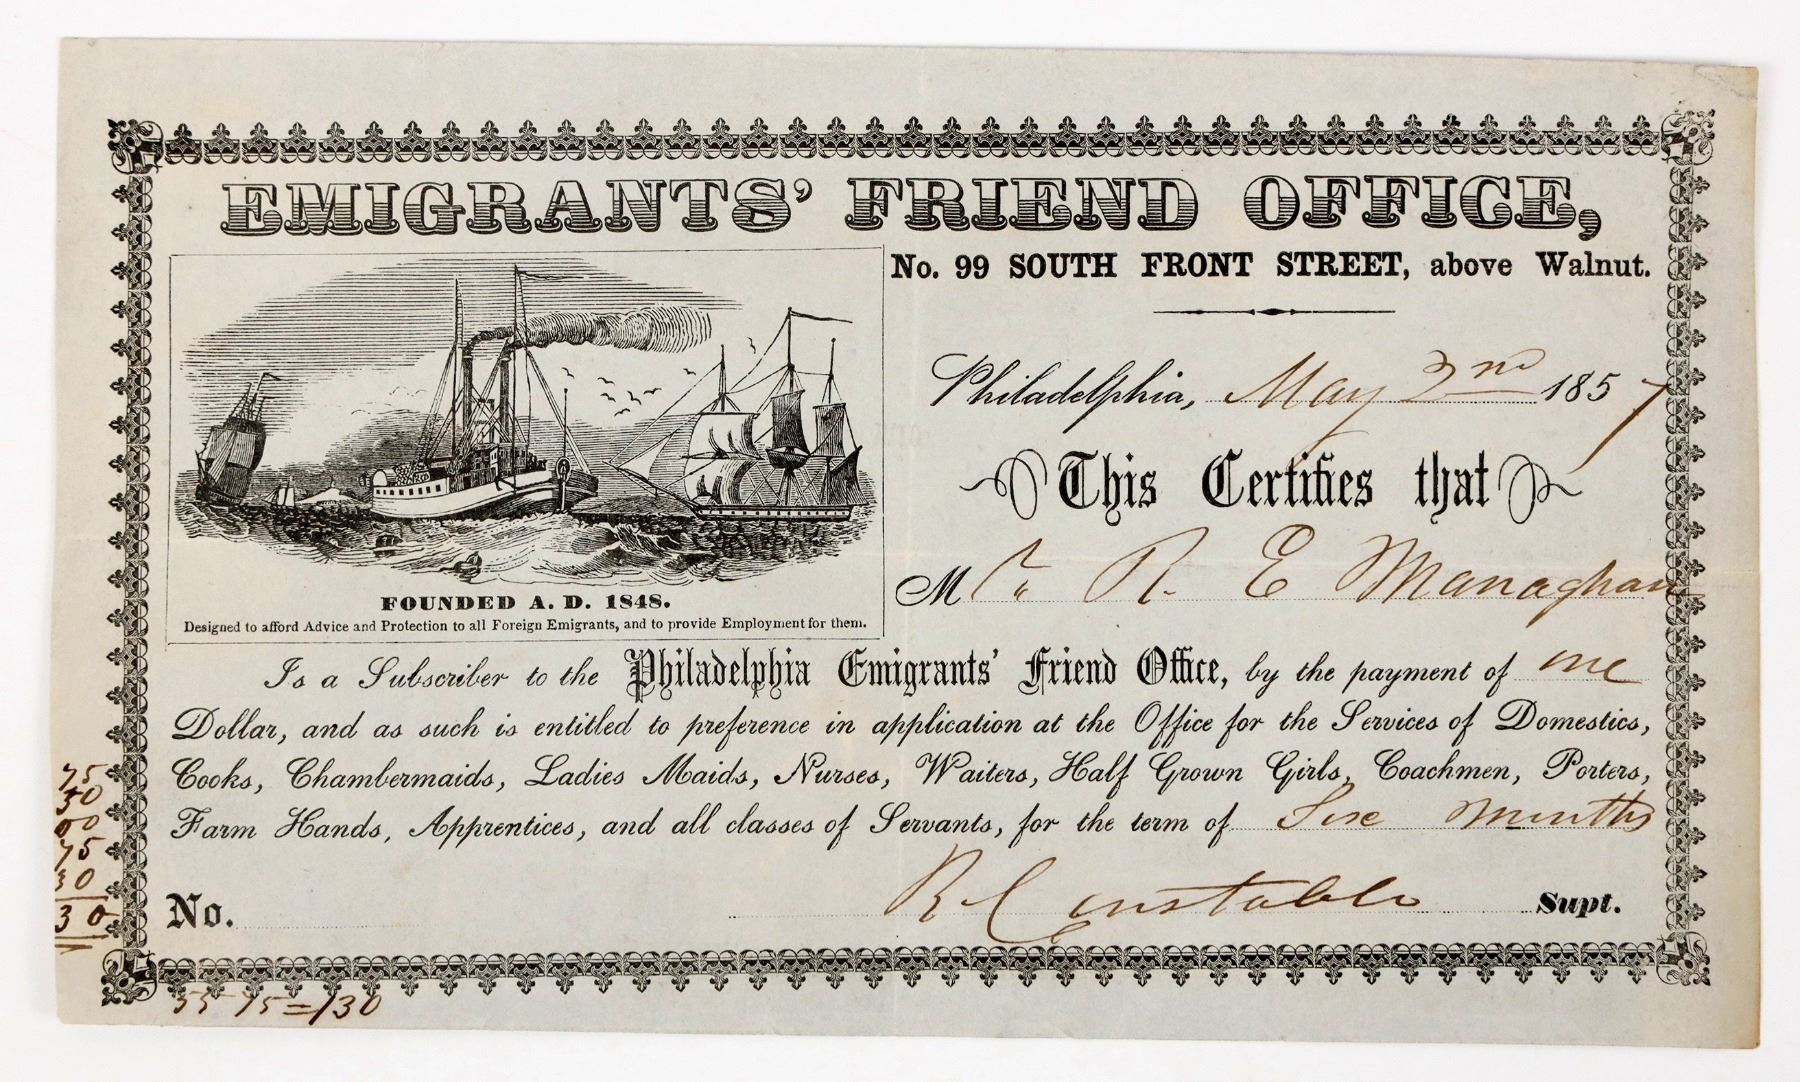 EMIGRANTS' FRIEND OFFICE,
No. 99 SOUTH FRONT STREET, above Walnut.
Philadelphia, May 2nd 1857
This Certifies that
Mr R. E Managhan
FOUNDED A. D. 1848.
Designed to afford Advice and Protection to all Foreign Emigrants, and to provide Employment for them.
Is a Subscriber to the Philadelphia Emigrants' Friend Office, by the payment of one
Dollar, and as such is entitled to preference in application at the Office for the Services of Domestics,
Cooks, Chambermaids, Ladies Maids, Nurses, Waiters, Half Grown Girls, Coachmen, Porters,
Farm Hands, Apprentices, and all classes of Servants, for the term of Six months
No. R Constable Supt.
75
30
00
75
30
30
55 75=130